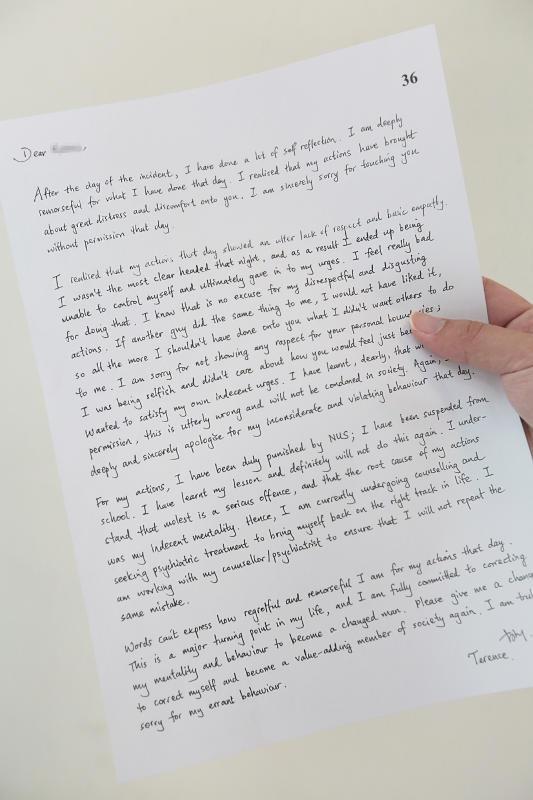 36
Dear
After the day of the incident, I have done a lot of self reflection. I am deeply
remorseful for what I have done that day. I realised that my actions have brought
about great distress and discomfort onto you. I am sincerely sorry for touching you
without permission that day.
I realised that my actions that day showed an utter lack of respect and basic empathy.
I wasn't the most clear headed that night, and as a result I ended up being
unable to control myself and ultimately gave in to my urges. I feel really bad
for doing that. I know that is no excuse for my disrespectful and disgusting
actions. If another guy did the same thing to me, I would not have liked it,
so all the more I shouldn't have done onto you what I didn't want others to do
to me. I am sorry for not showing any respect for your personal boundaries;
I was being selfish and didn't care about how you would feel just
wanted to satisfy my own indecent urges. I have learnt, dearly, that
permission, this is utterly wrong and will not be condoned in society. Again,
deeply and sincerely apologise for my inconsiderate and violating behaviour that day.
For my actions, I have been duly punished by NUS; I have been suspended from
school. I have learnt my lesson and definitely will not do this again. I under-
stand that molest is a serious offence, and that the root cause of my actions
was my indecent mentality. Hence, I am currently undergoing counselling and
seeking psychiatric treatment to bring myself back on the right track in life. I
am working with my counsellor/psychiatrist to ensure that I will not repeat the
same mistake.
Words can't express how regretful and remorseful I am for my actions that day.
This is a major turning point in my life, and I am fully committed to correcting
my mentality and behaviour to become a changed man. Please give me a chance
to correct myself and become a value-adding member of society again. I am truly
sorry for my errant behaviour.
Terence.